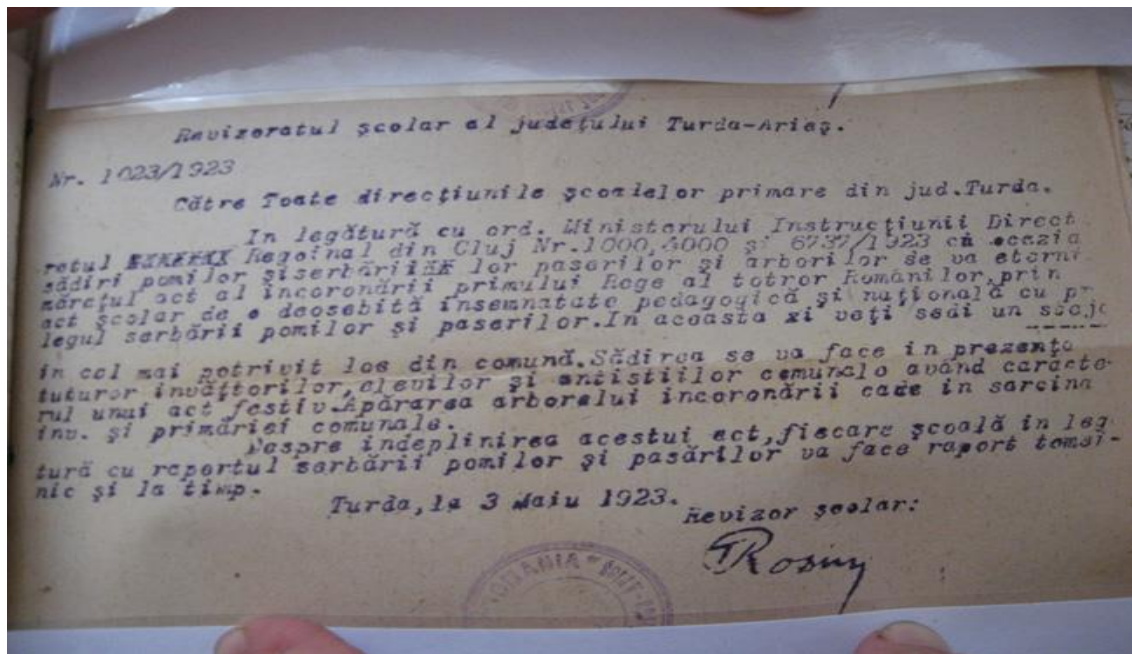 Revizoratul şcolar al judeţului Turda-Arieş.
Nr. 1023/1923
Către Toate direcţiunile şcoalelor primare din jud.Turda.
In legătură cu ord. Ministerului Instrucţiunii Direct
ratul Regoinal din Cluj Nr.1000,4000 şi 6737/1923 cu ocazia
sădiri pomilor şiserbării lor paserilor şi arborilor se va eterni
măreţul act al incoronării primului Rege al totror Românilor,prin
act şcolar de o deosebită insemnatate pedagogică şi naţională cu pr
legul serbării pomilor şi paserilor.In aceasta zi veţi sedi un stejo
in cel mai potrivit los din comună.Sădirea se va face in prezenţa
tuturor invăţtorilor,elevilor şi antistiilor comunale având caracte-
rul unui act festiv.Apărarea arborelui incoronării cade in sarcina
inv. şi primăriei comunale.
Despre indeplinirea acestui act,fiecare şcoală in leg
tură cu raportul serbării pomilor şi pasărilor va face raport temei-
nic şi la timp.
Turda,la 3 Maiu 1923.
Revizor şcolar:
ROMANIA